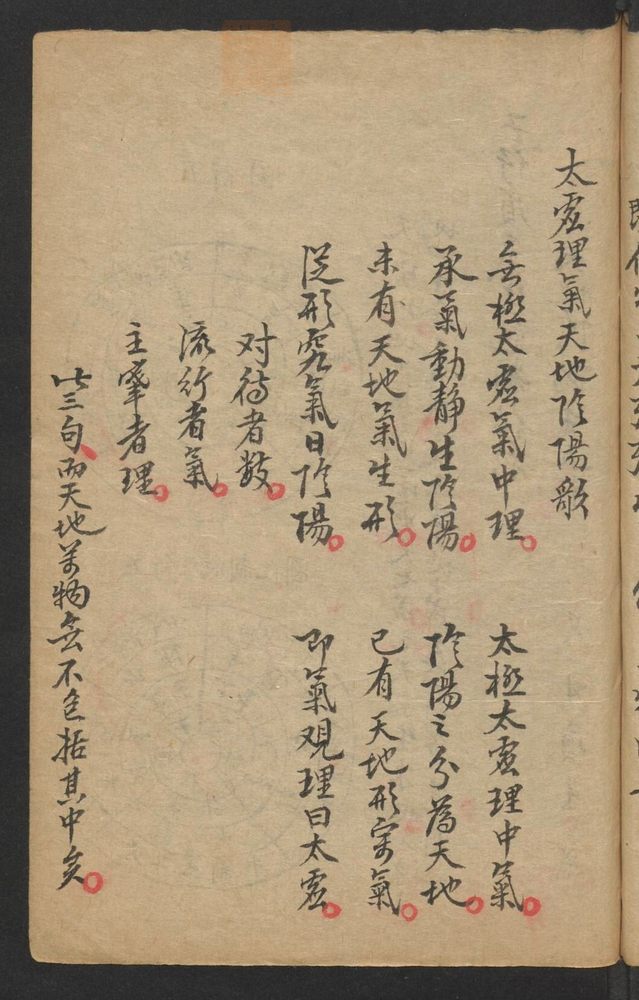 太虛理氣天地陰陽歌
無極太虛氣中理。 太極太虛理中氣。
承氣動靜生陰陽。 陰陽之分為天地。
未有天地氣生形。 已有天地形寓氣。
從形究氣曰陰陽。 即氣观理曰太虛。
对待者数。
流行者氣。
主宰者理。
此三句、而天地萬物無不包括其中矣。